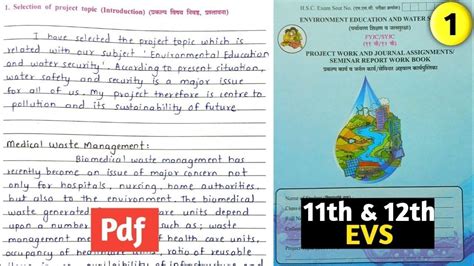 1. Selection of project topic (Introduction) (प्रकल्प विषय निवड, प्रस्तावना)
I have selected the project topic which is
related with our subject 'Environmental Education
and water security'. According to present situation,
water safety and security is a major issue
for all of us. My project therefore is centre to
pollution and its sustainability of future.
Medical Waste Management:
Biomedical waste management has
recently become an issue of major concern not
only for hospitals, nursing, home authorities,
but also to the environment. The biomedical
waste generated care units depend
upon a number such as; waste
management me of health care units,
occupancy of healthcare ratio of reusable
availability of infrastructure and
Pdf
H.S.C. Exam Seat No.
ENVIRONMENT EDUCATION AND WATER
FYJC/SYJC
(११ वी/१२ वी)
PROJECT WORK AND JOURNAL ASSIGNMENTS/
SEMINAR REPORT WORK BOOK
1
11th & 12th
EVS